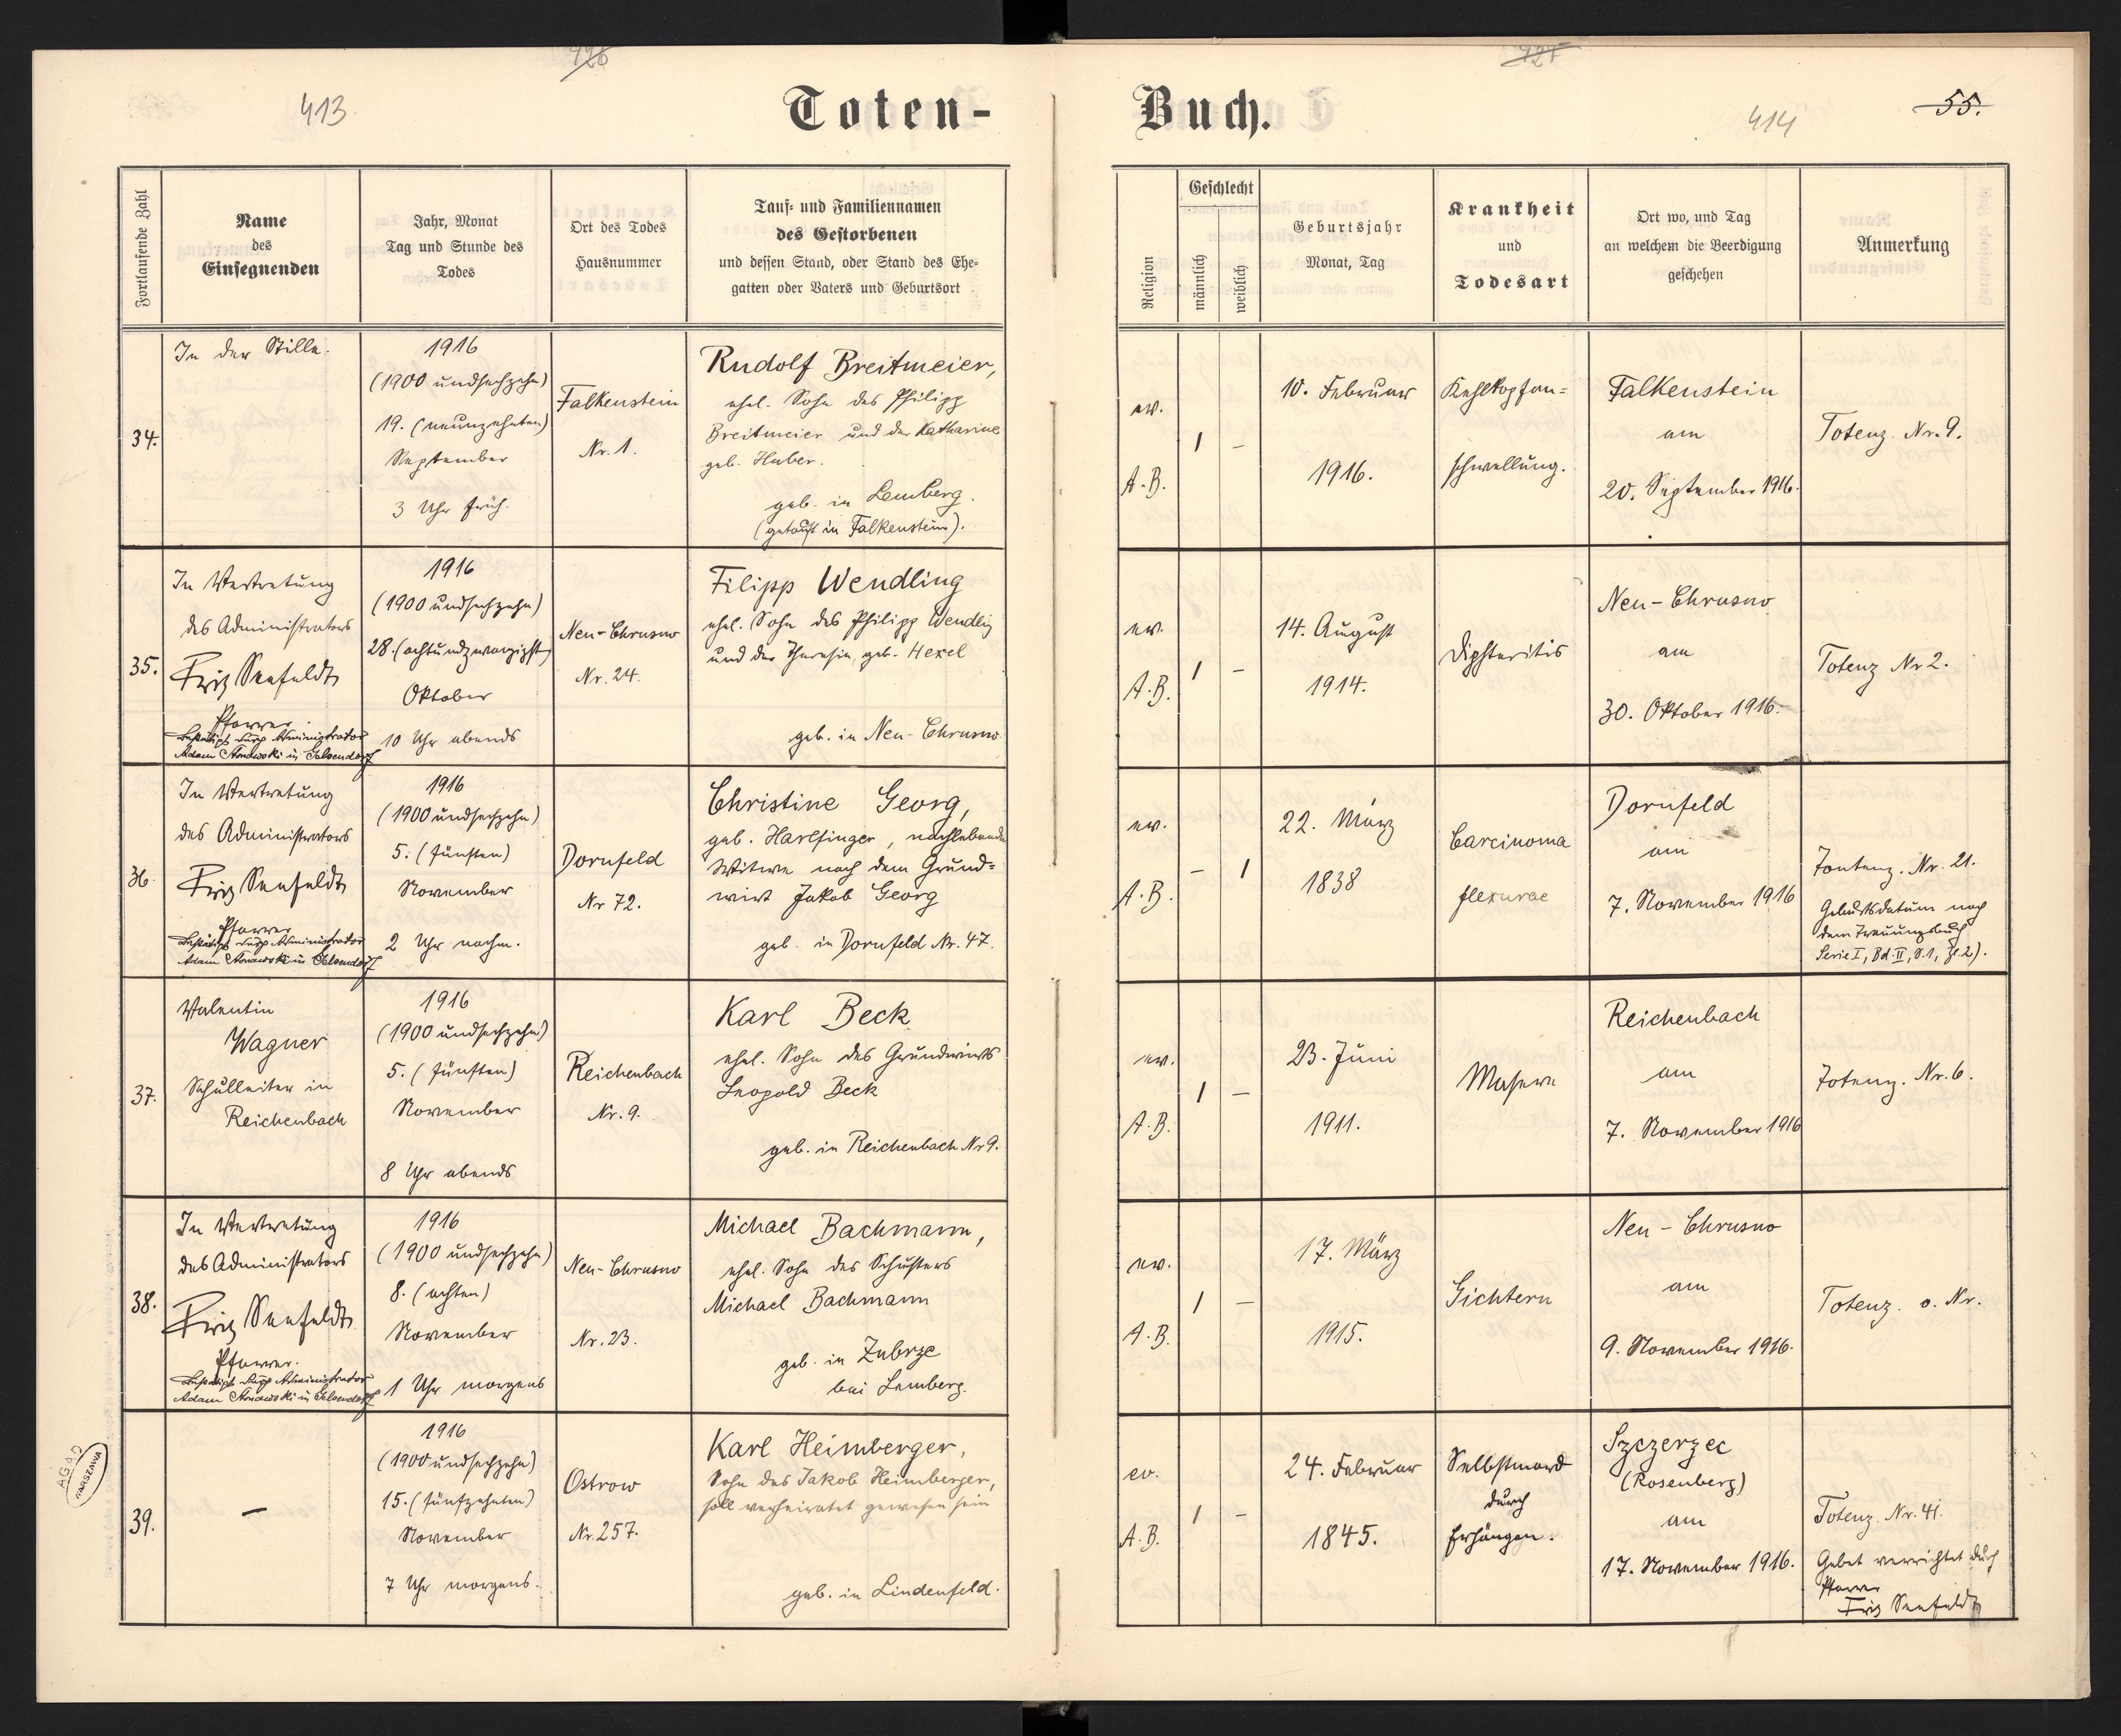 426
413
Toten-
Fortlaufende Zahl
Name
des
Einsegnenden
Jahr, Monat
Tag und Stunde des
Todes
Ort des Todes
Hausnummer
Tauf- und Familiennamen
des Gestorbenen
und dessen Stand, oder Stand des Ehe-
gatten oder Vaters und Geburtsort
34.
In der Stille.
1916
(1900 undsechzehn)
19. (neunzehnten)
September
3 Uhr früh.
Falkenstein
Nr. 1.
Rudolf Breitmeier,
ehel. Sohn des Philipp
Breitmeier und der Katharina
geb. Huber.
geb. in Lemberg.
(getauft in Falkenstein).
35.
In Vertretung
des Administrators
Fritz Seefeldt
Pfarrer.
Bestätigt durch Administrator
Adam in Gelsendorf
1916
(1900 undsechzehn)
28. (achtundzwanzigst)
Oktober
10 Uhr abends
Neu-Chrusno
Nr. 24.
Filipp Wendling
ehel. Sohn des Philipp Wendling
und der Theresia, geb. Hexel
geb. in Neu-Chrusno
36.
In Vertretung
des Administrators
Fritz Seefeldt
Pfarrer
Bestätigt durch Administrator
Adam in Gelsendorf
1916
(1900 undsechzehn)
5. (fünften)
November
2 Uhr nachm.
Dornfeld
Nr 72.
Christine Georg,
geb. Harlfinger, nachlebende
Witwe nach dem Grund-
wirt Jakob Georg
geb. in Dornfeld Nr. 47.
37.
Valentin
Wagner
Schulleiter in
Reichenbach
1916
(1900 undsechzehn)
5. (fünften)
November
8 Uhr abends
Reichenbach
Nr. 9.
Karl Beck
ehel. Sohn des Grundwirts
Leopold Beck
geb. in Reichenbach Nr 9.
38.
In Vertretung
des Administrators
Fritz Seefeldt
Pfarrer.
Bestätigt durch Administrator
Adam in Gelsendorf
1916
(1900 undsechzehn)
8. (achten)
November
1 Uhr morgens
Neu-Chrusno
Nr. 23.
Michael Bachmann,
ehel. Sohn des Schusters
Michael Bachmann
geb. in Zubrze
bei Lemberg.
39.
—
1916
(1900 undsechzehn)
15. (fünfzehnten)
November
7 Uhr morgens.
Ostrow
Nr. 257.
Karl Heimberger,
Sohn des Jakob Heimberger,
soll verheiratet gewesen sein
geb. in Lindenfeld.
AGAD
WARSZAWA
427
Buch.
414
55.
Religion
Geschlecht
männlich
weiblich
Geburtsjahr
Monat, Tag
Krankheit
und
Todesart
Ort wo, und Tag
an welchem die Beerdigung
geschehen
Anmerkung
ev.
A.B.
1 –
10. Februar
1916.
Kehlkopfan-
schwellung.
Falkenstein
am
20. September 1916.
Totenz. Nr. 9.
ev.
A.B.
1 –
14. August
1914.
Diphteritis
Neu-Chrusno
am
30. Oktober 1916.
Totenz Nr 2.
ev.
A.B.
– 1
22. März
1838
Carcinoma
flexurae
Dornfeld
am
7. November 1916
Totenz. Nr. 21.
Geburtsdatum nach
dem Trauungsbuch
Serie I, Bd. II, S. 1, Zl. 2).
ev.
A.B.
1 –
23. Juni
1911.
Masern
Reichenbach
am
7. November 1916
Totenz. Nr. 6.
ev.
A.B.
1 –
17. März
1915.
Gichtern
Neu-Chrusno
am
9. November 1916.
Totenz. o. Nr.
ev.
A.B.
1 –
24. Februar
1845.
Selbstmord
durch
Erhängen.
Szczerzec
(Rosenberg)
am
17. November 1916.
Totenz. Nr. 41.
Gebet verrichtet durch
Pfarrer
Fritz Seefeldt